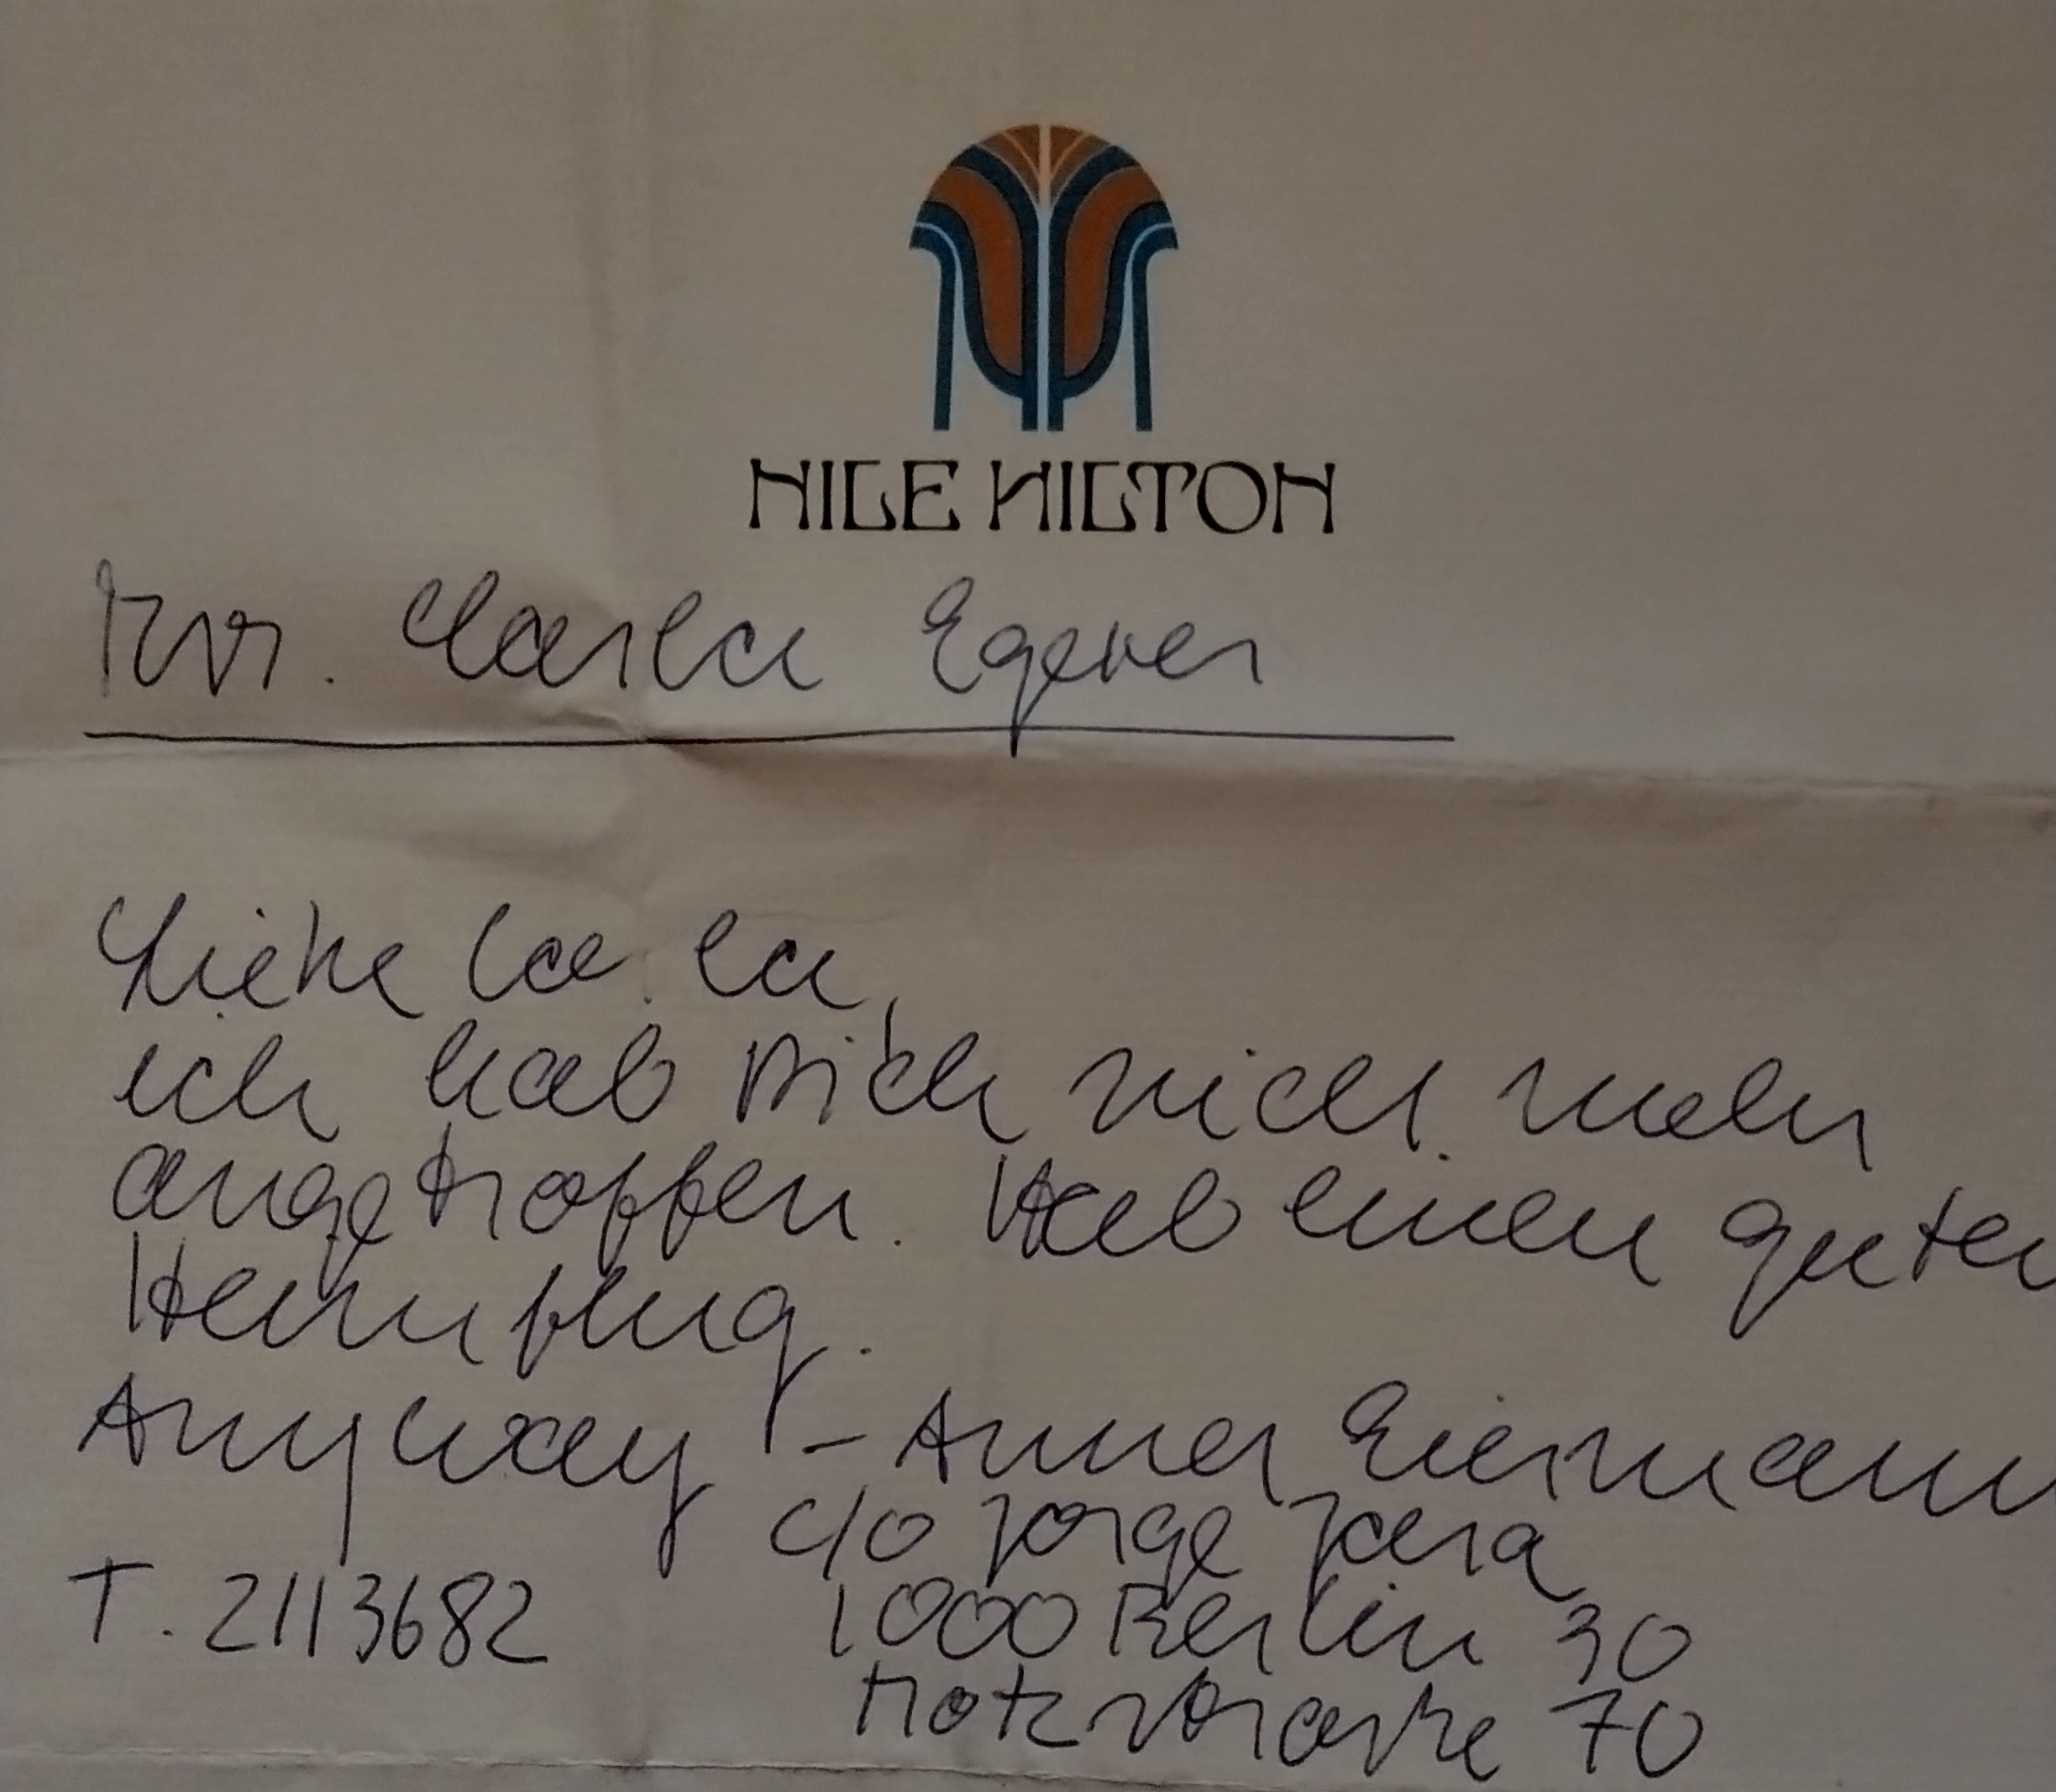 NILE HILTON
Mrs. Carla Egerer
Liebe Carla,
ich hab Dich nicht mehr
angetroffen. Hab einen guten
Heimflug.
Anyway! – Anna Eiermann
c/o Jorge Jara
T. 2113682 1000 Berlin 30
Motzstraße 70